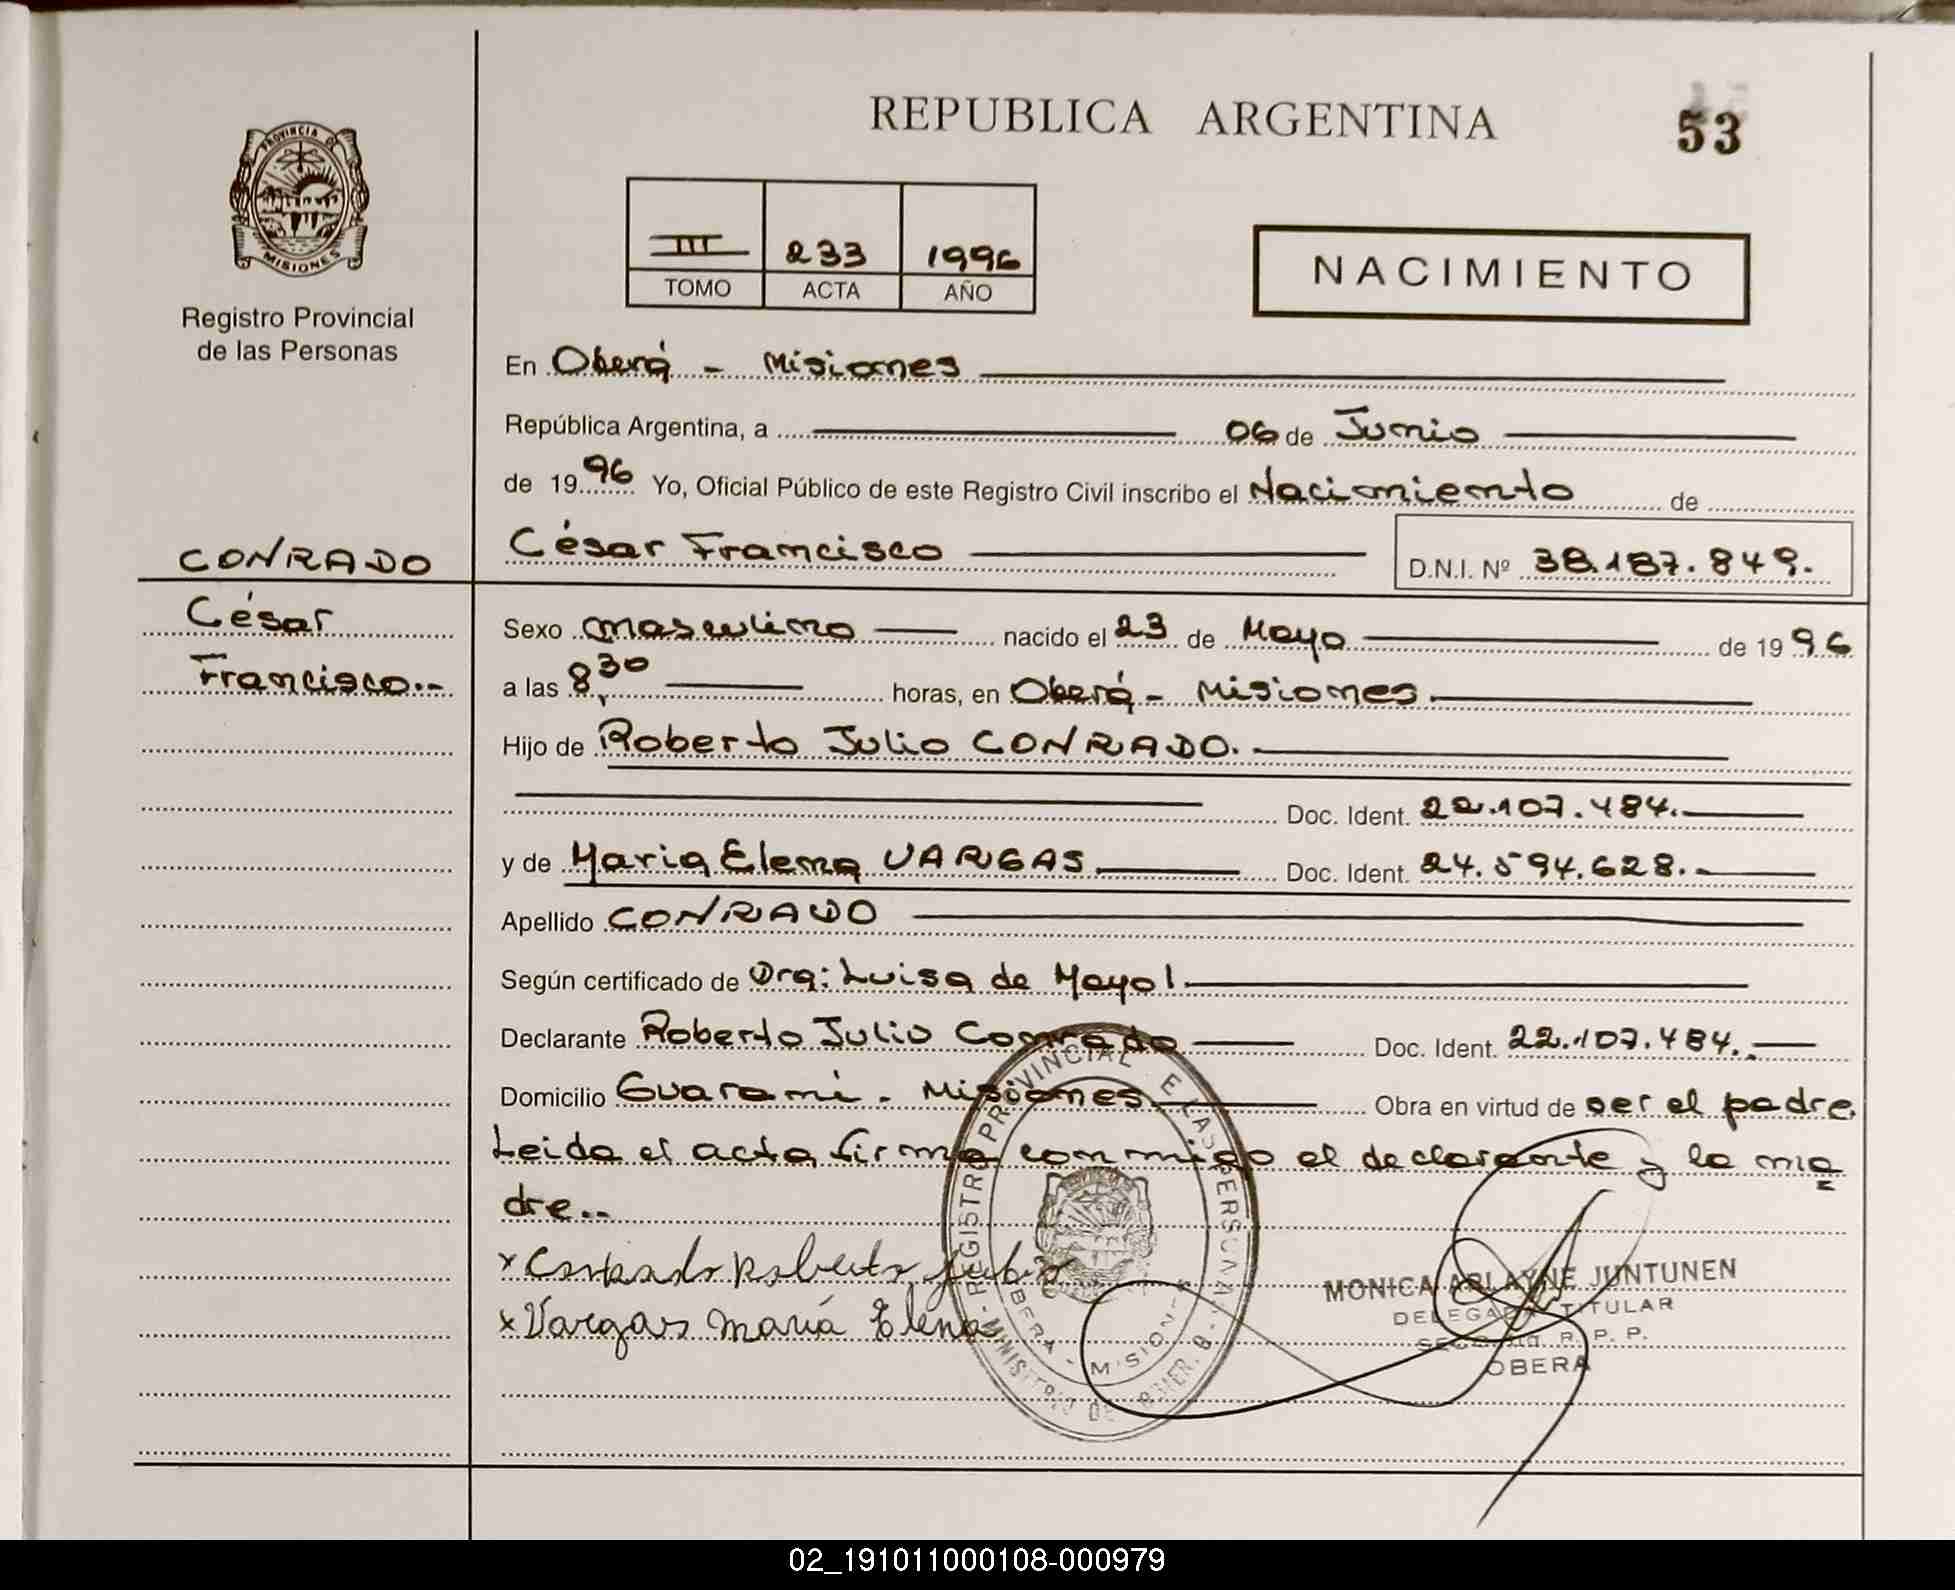 REPUBLICA ARGENTINA
53
PROVINCIA DE
MISIONES
Registro Provincial
de las Personas
III 233 1996
TOMO ACTA AÑO
NACIMIENTO
En Oberá - Misiones
República Argentina, a 06 de Junio
de 1996 Yo, Oficial Público de este Registro Civil inscribo el Nacimiento de
CONRADO
César Francisco D.N.I. Nº 38.187.849.
César
Francisco.-
Sexo masculino nacido el 23 de Mayo de 1996
a las 8,30 horas, en Oberá - Misiones
Hijo de Roberto Julio CONRADO.
Doc. Ident. 22.107.484.
y de Maria Elena VARGAS Doc. Ident. 24.594.628.
Apellido CONRADO
Según certificado de Dra: Luisa de Mayol
Declarante Roberto Julio Conrado Doc. Ident. 22.107.484.
Domicilio Guaraní - Misiones Obra en virtud de ser el padre
Leida el acta firma conmigo el declarante y la ma
dre.-
x Conrado Roberto Julio
x Vargas María Elena
REGISTRO PROVINCIAL
OBERA - MISIONES
MONICA ARLAYNE JUNTUNEN
DELEGADA TITULAR
R. P. P.
OBERA
02_191011000108-000979